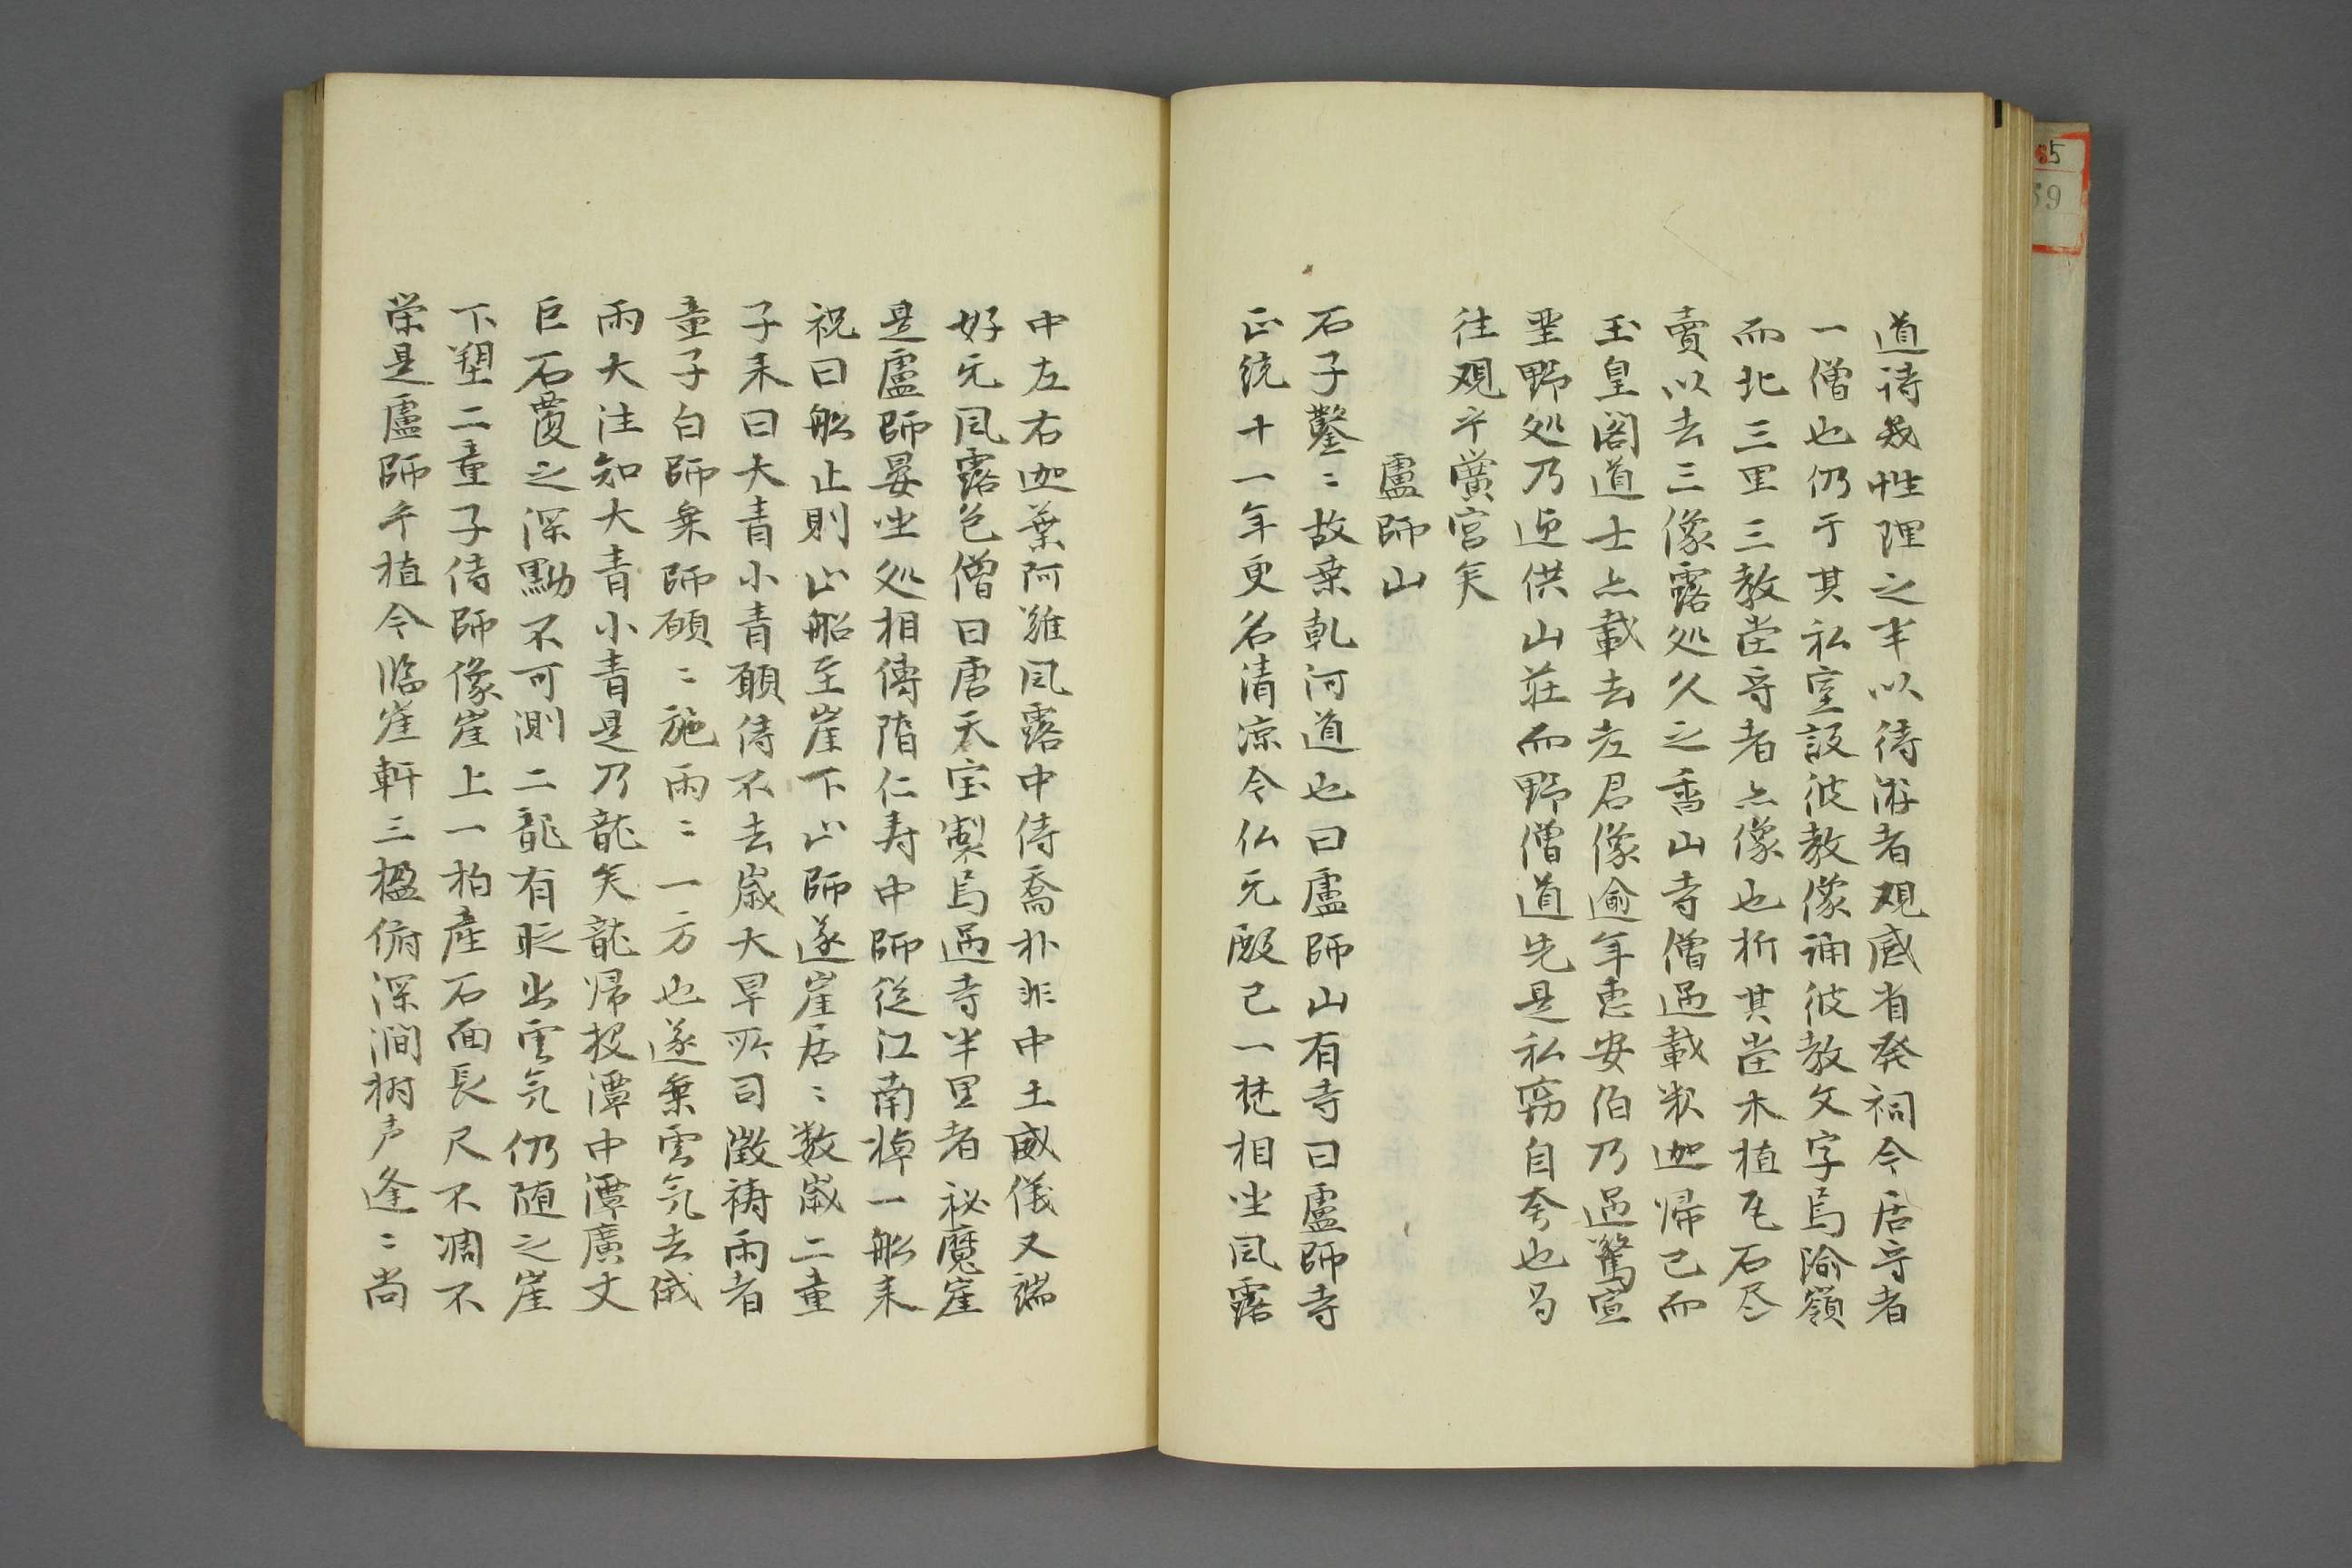 道詩発性理之本以待游者観感省発祠今居守者
一僧也仍于其私室設彼教像誦彼教文字焉隃嶺
而北三里三教堂守者亡像也折其堂木植瓦石尽
賣以去三像露処久之香山寺僧過載釈迦帰已而
玉皇閣道士亡載去老君像逾年恵安伯乃過驚宣
聖野処乃迎供山荘而野僧道先是私竊自夸也曷
往観乎黌宮矣
盧師山
石子鑿〻故桒乹河道也曰盧師山有寺曰盧師寺
正統十一年更名清涼今仏无殿已一梵相坐风露
中左右迦葉阿難风露中侍喬朴非中土威儀又端
好无风露色僧曰唐天宝製焉過寺半里者祕魔崖
是盧師晏坐処相傳隋仁寿中師従江南棹一船来
祝曰船止則止船至崖下止師遂崖居〻数歳二童
子来曰大青小青願侍不去歳大旱所司徴祷雨者
童子白師乗師願〻施雨〻一方也遂乗雲気去俄
雨大注知大青小青是乃龍矣龍帰投潭中潭廣丈
巨石覆之深黝不可測二龍有时出雲気仍随之崖
下塑二童子侍師像崖上一柏産石面長尺不凋不
栄是盧師手植今臨崖軒三楹俯深澗树声逢〻尚
35
59